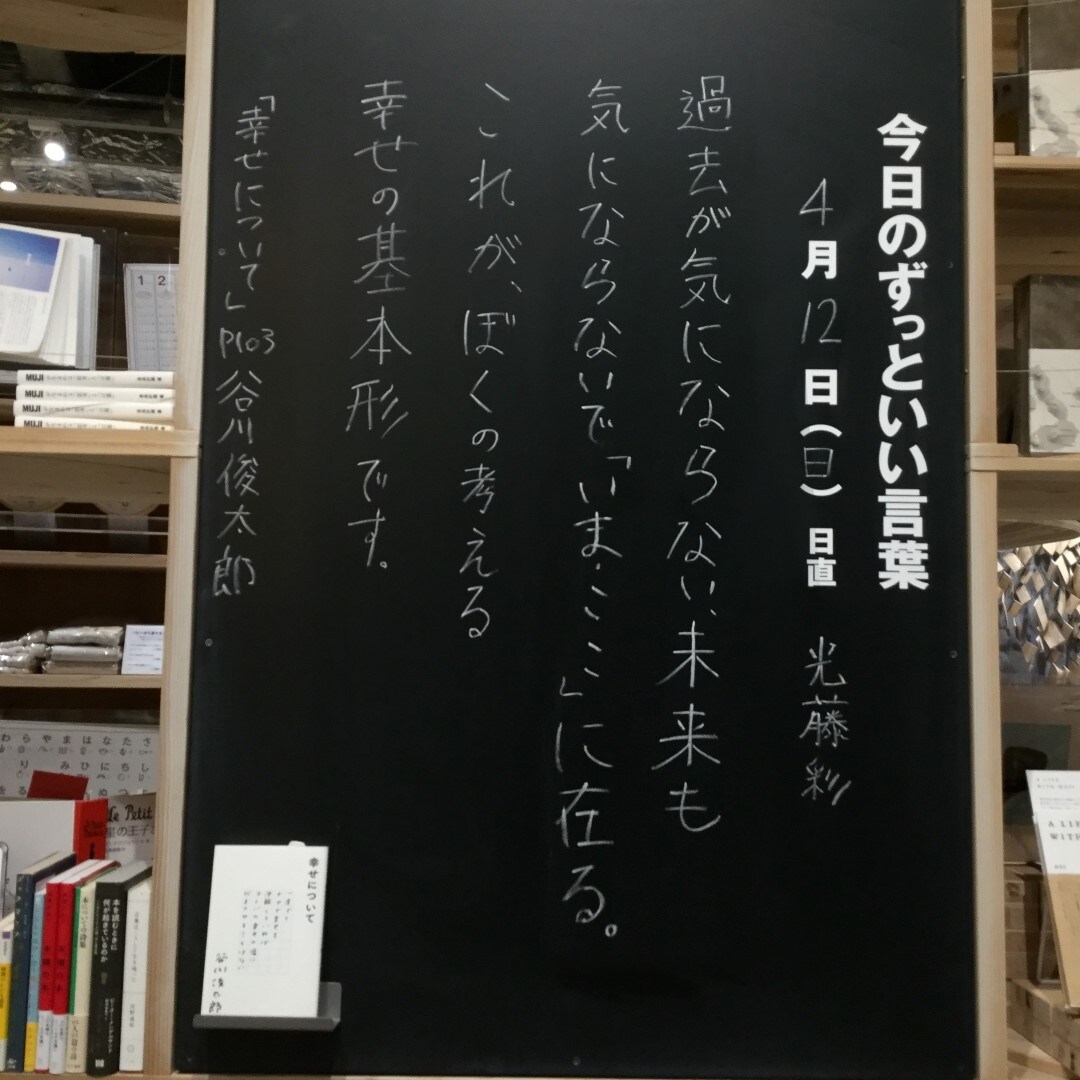 今日のずっといい言葉
4月12日(日) 日直 光藤 彩
過去が気にならない、未来も
気にならないで「いま・ここ」に在る。
これが、ぼくの考える
幸せの基本形です。
「幸せについて」P103 谷川俊太郎
幸せについて
谷川俊太郎
MUJI
MUJI
MUJI
MUJI
1 2
わらやまはなたさ
り みひにちし
Le Petit
星の王子さ
本を読むときに
何が起きているのか
A LI
WIT